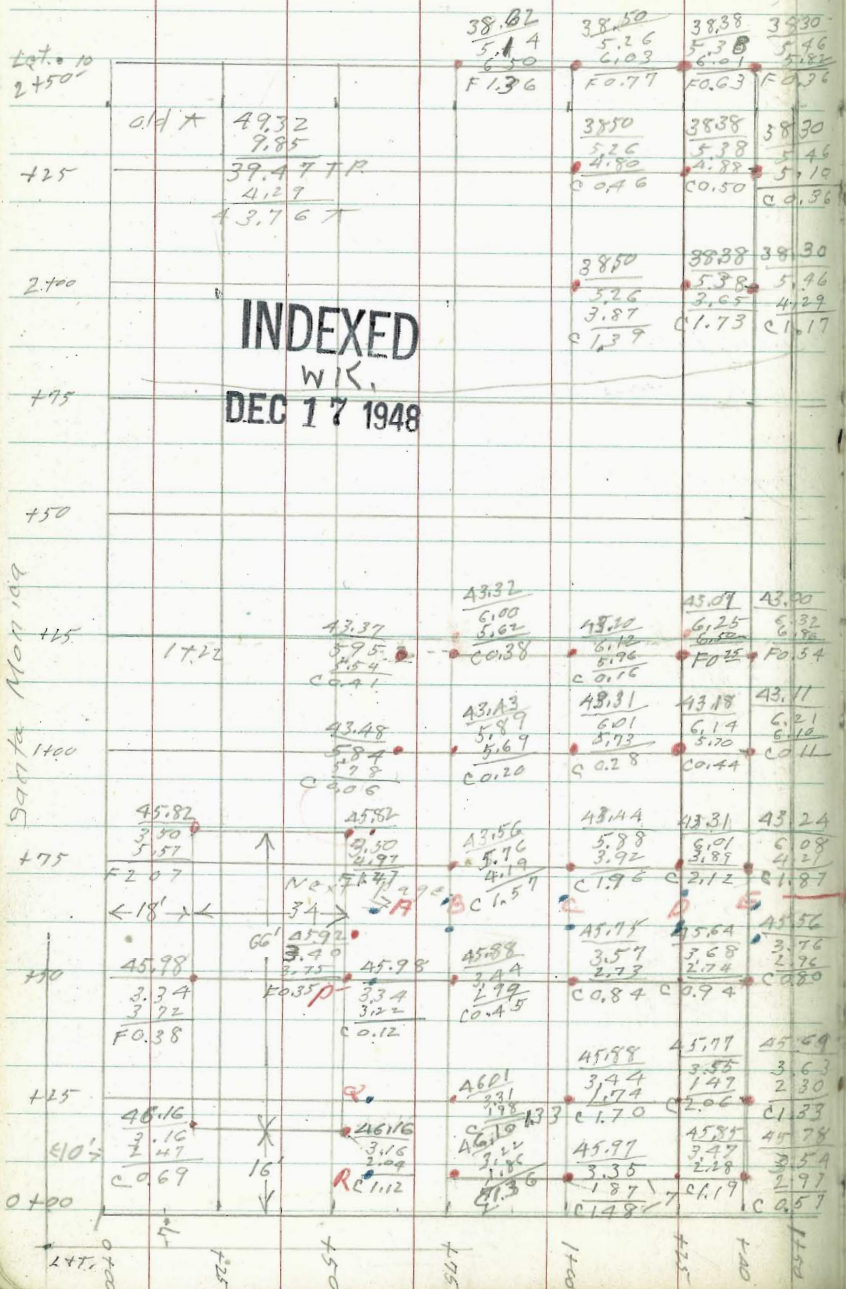 38.62
5.14
6.50
F1.36
38.50
5.26
6.03
F0.77
38.38
5.38
6.01
F0.63
38.30
5.46
5.82
F0.36
2+50
old ⊼ 49.32
9.85
39.47 T.P.
4.29
43.76 ⊼
+25
3850
5.26
4.80
C0.46
3838
5.38
4.88
C0.50
38.30
5.46
5.10
C0.36
2+00
38.50
5.26
3.87
C1.39
38.38
5.38
3.65
C1.73
38.30
5.46
4.29
C1.17
INDEXED
WK.
DEC 17 1948
+75
+50
Santa Monica
+25
1+22
43.37
5.95
5.54
C0.41
43.32
6.00
5.62
C0.38
43.20
6.12
5.96
C0.16
43.07
6.25
6.50
F0.25
43.00
6.32
6.86
F0.54
1+00
43.48
5.84
5.78
C0.06
43.43
5.89
5.69
C0.20
43.31
6.01
5.73
C0.28
43.18
6.14
5.70
C0.44
43.11
6.21
6.10
C0.11
+75
45.82
3.50
5.57
F2.07
45.82
3.50
4.97
F1.47
43.56
5.76
4.19
C1.57
43.44
5.88
3.92
C1.96
43.31
6.01
3.89
C2.12
43.24
6.08
4.21
C1.87
Next Page
18'
34
A B C D E
66'
+50
45.98
3.34
3.72
F0.38
45.92
3.40
3.75
F0.35
P
45.98
3.34
3.22
C0.12
45.88
3.44
2.99
C0.45
45.75
3.57
2.73
C0.84
45.64
3.68
2.74
C0.94
45.56
3.76
2.96
C0.80
+25
Q
4601
3.31
1.98
1.33
45.88
3.44
1.74
C1.70
45.77
3.55
1.49
C2.06
45.69
3.63
2.30
C1.33
10'
46.16
3.16
2.47
C0.69
16'
46.16
3.16
2.04
R C1.12
46.10
3.22
1.86
C1.36
45.97
3.35
1.87
C1.48
45.85
3.47
2.28
C1.19
45.78
3.54
2.97
C0.57
0+00
0+00
+25
+50
+75
1+00
+25
+40
1+50